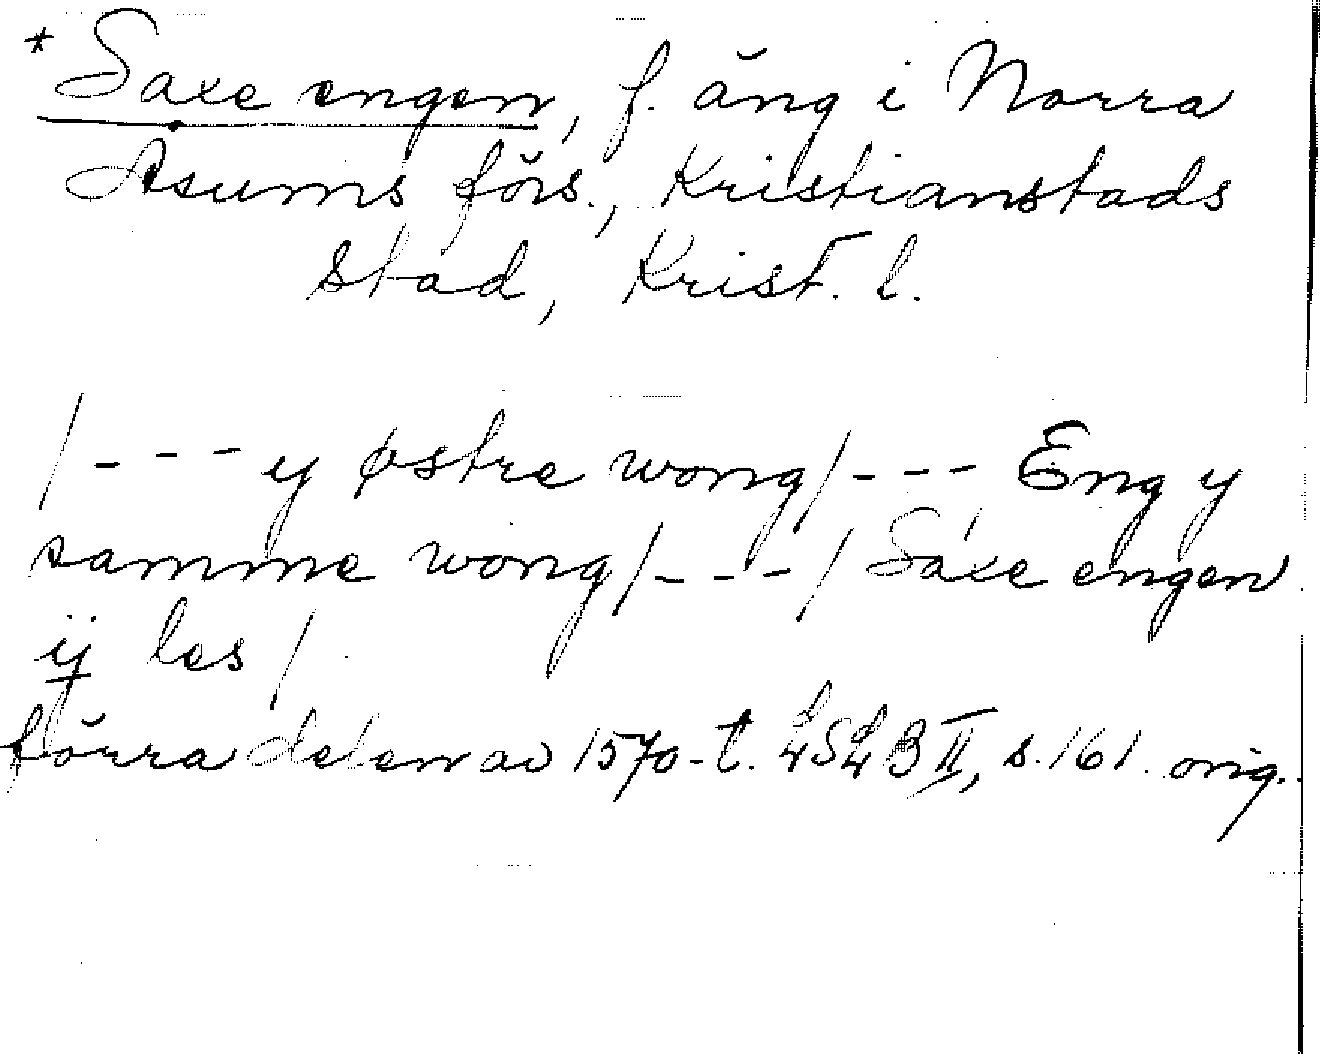 * Saxe engen, f. äng i Norra
Åsums förs., Kristianstads
stad, Krist. l.
/--- y østre wong/--- Eng y
samme wong/---/ Saxe engen
ij les /
förra delen av 1570-t. LSLB II, s. 161. orig.